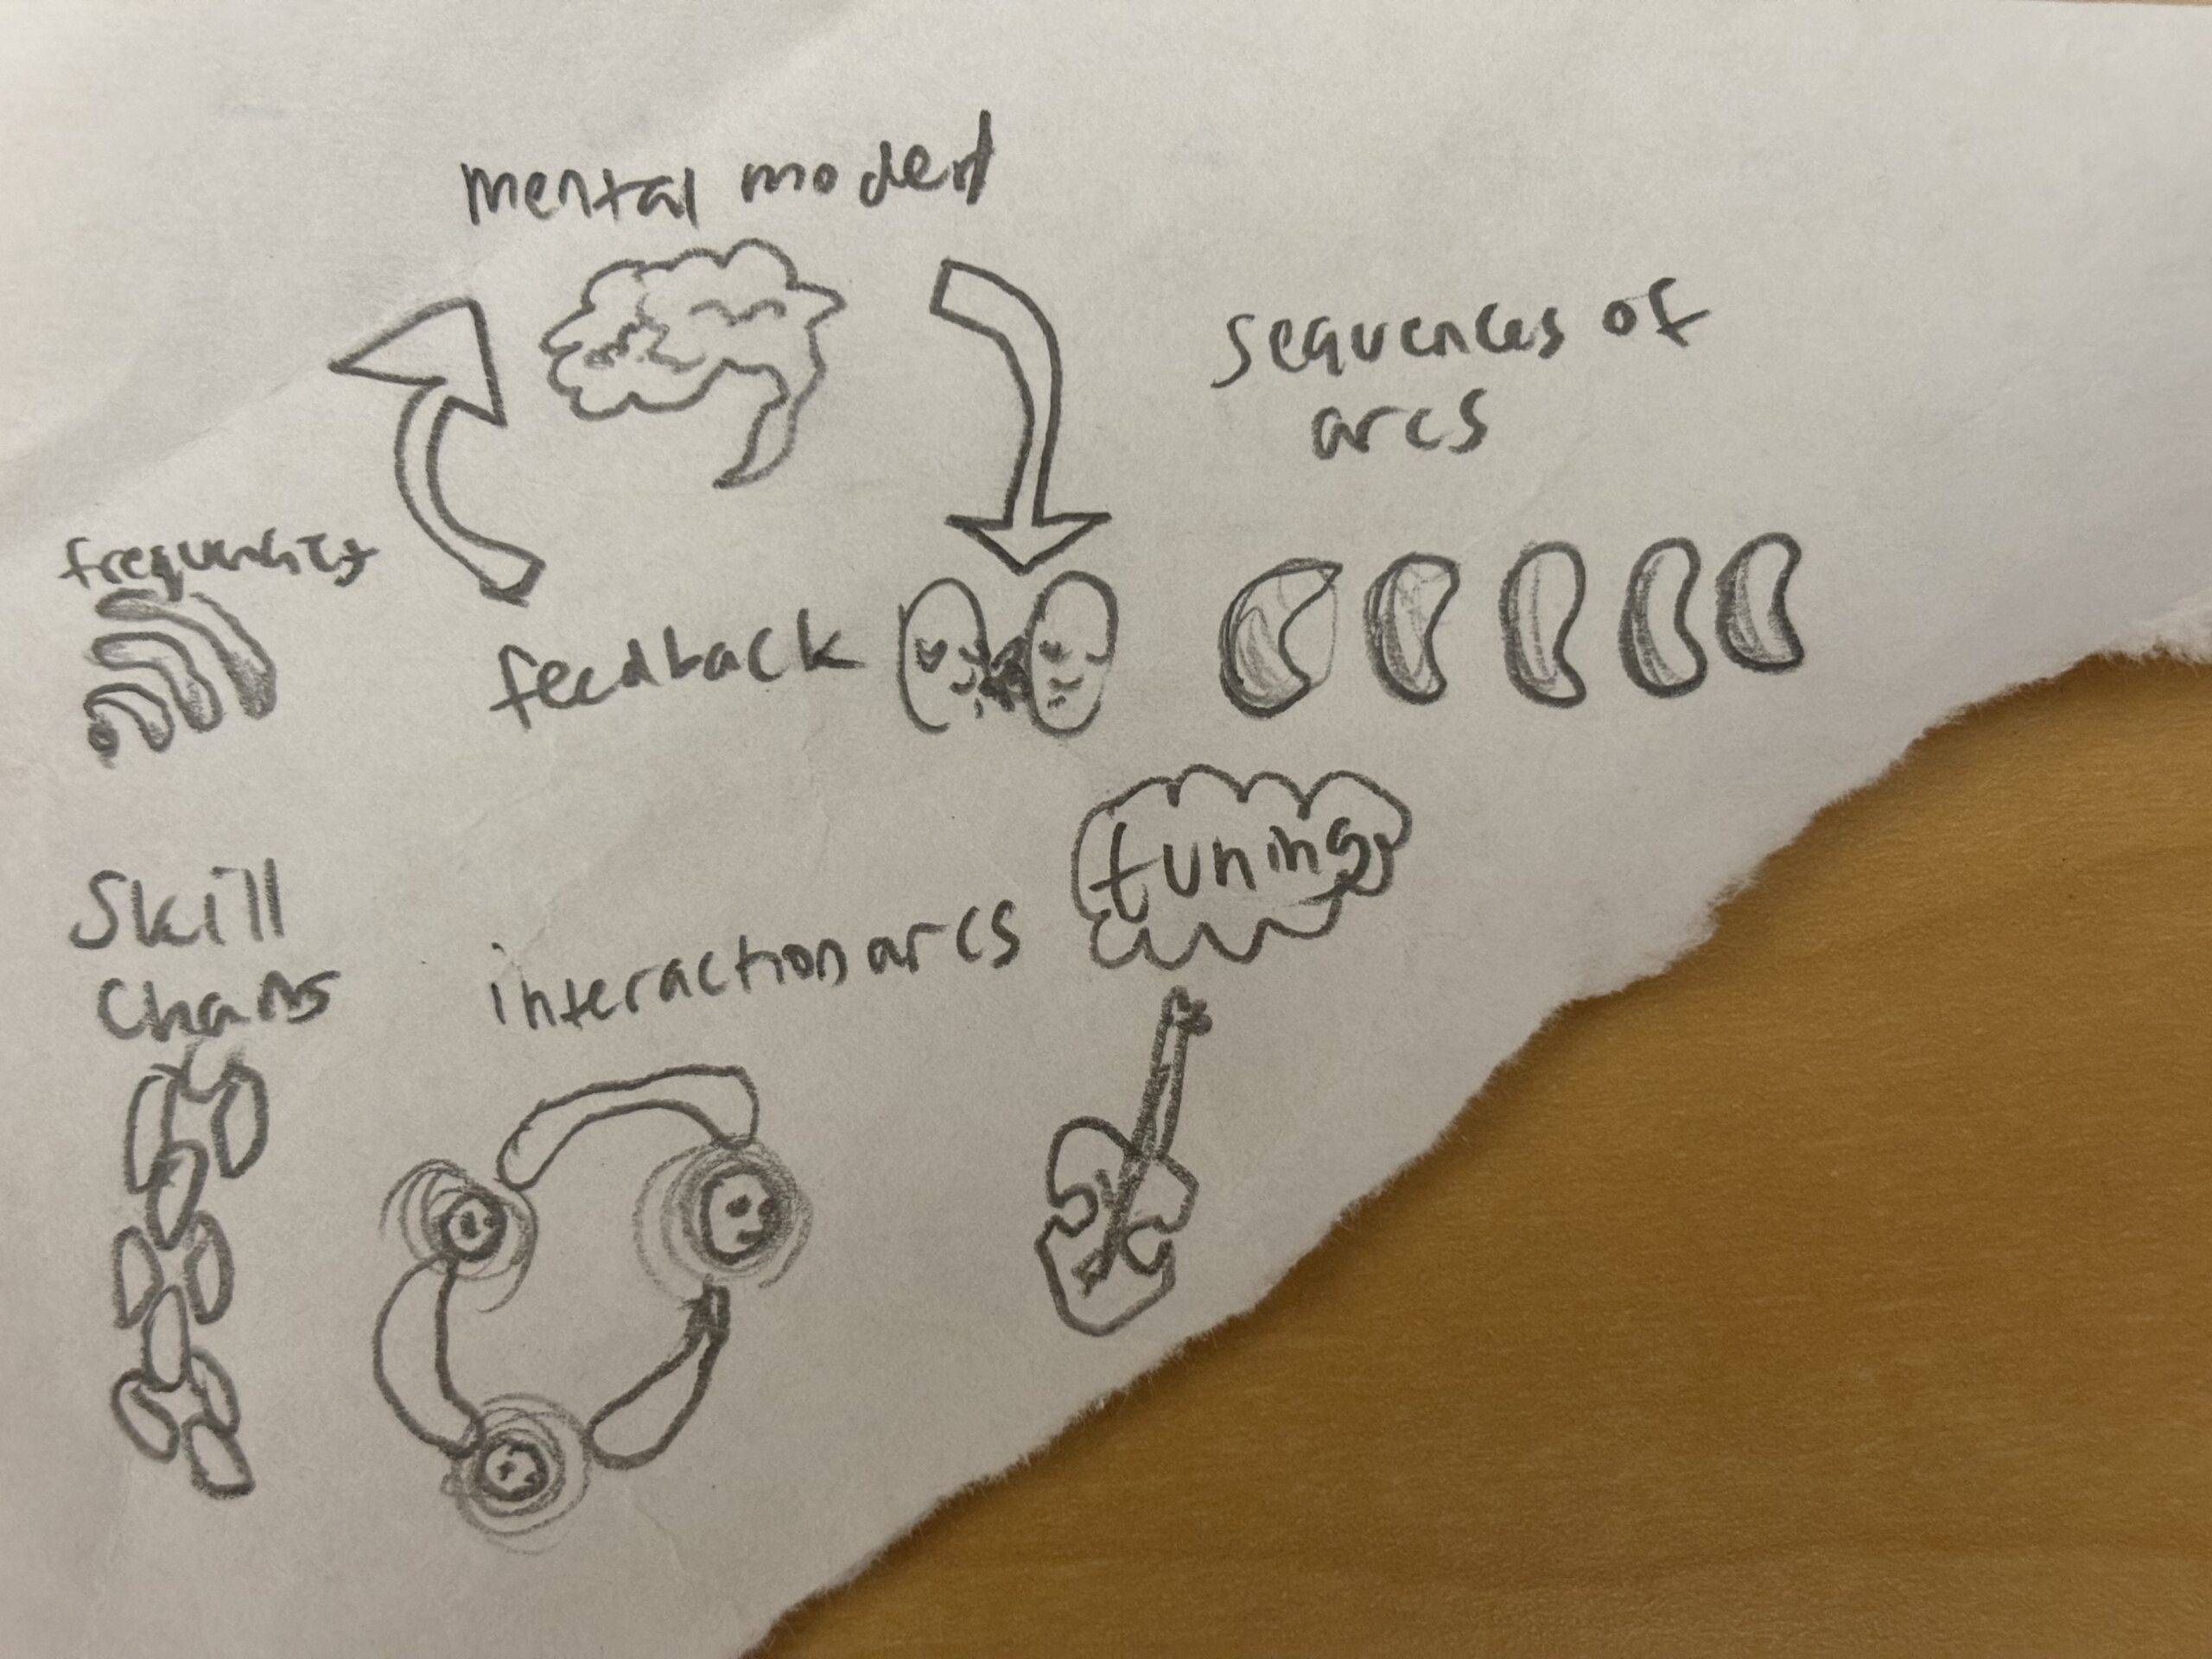 mental model
sequences of
arcs
feedback
Skill
chans
interaction arcs
tuning